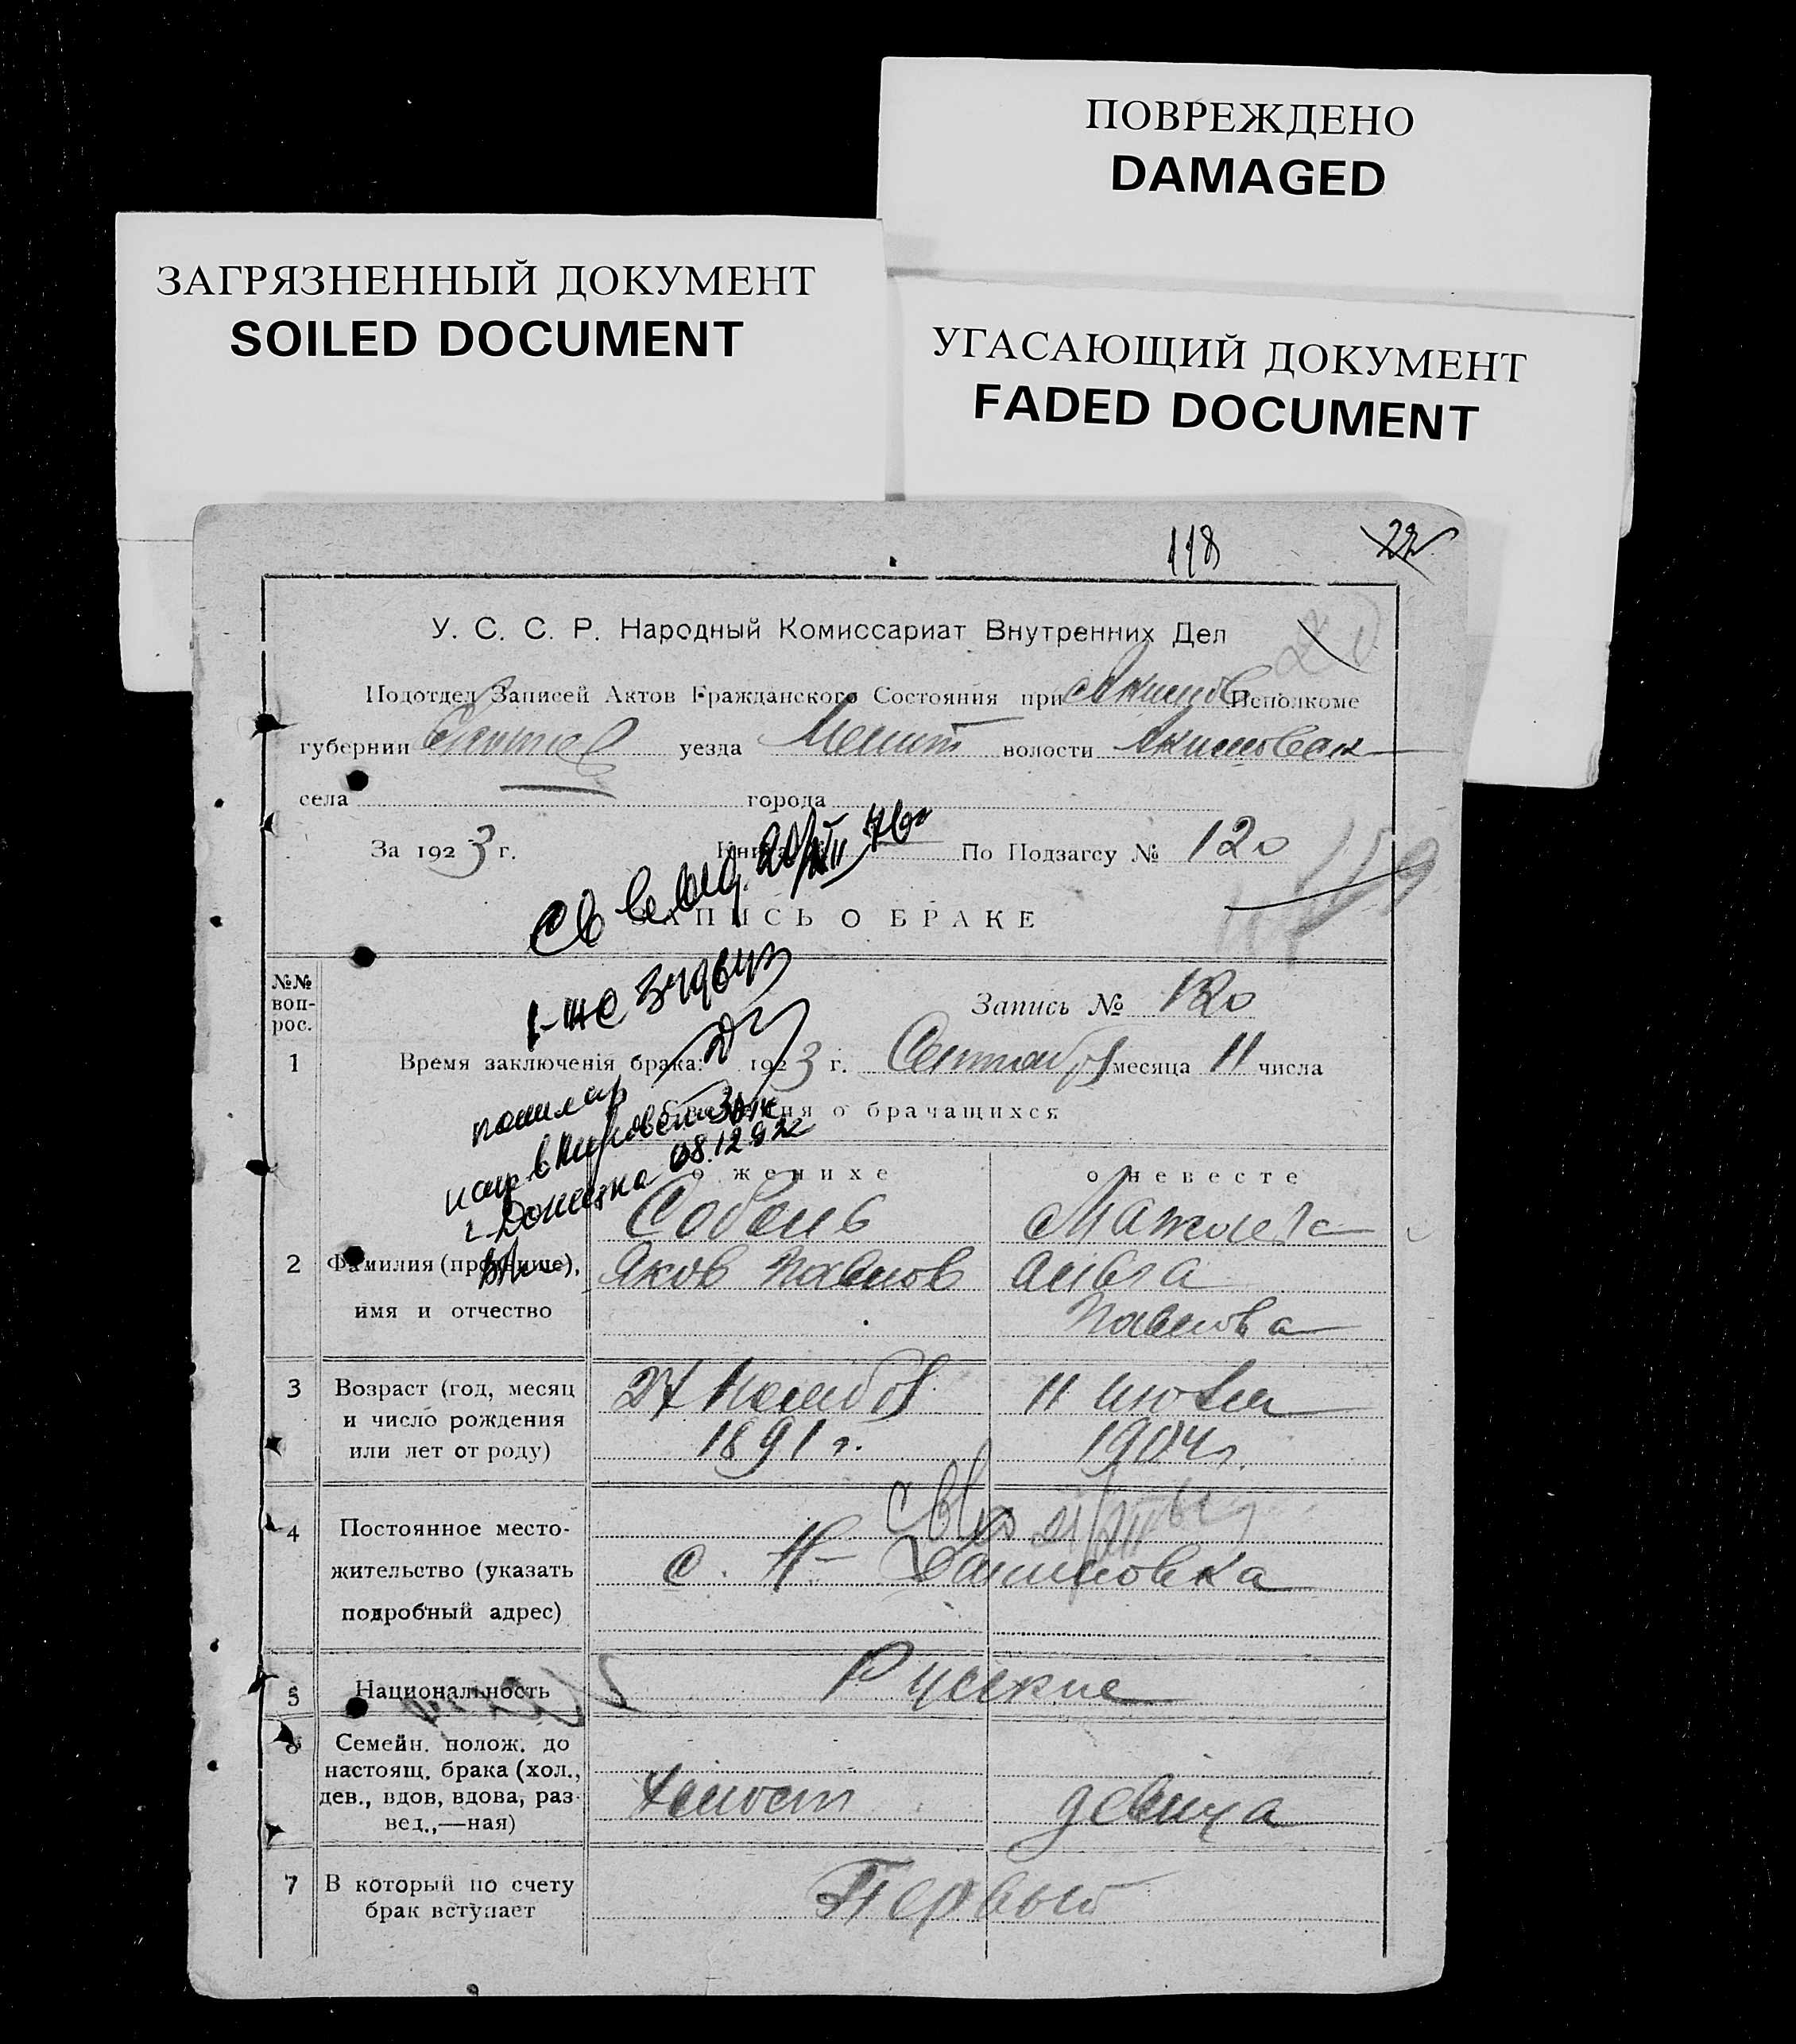 ПОВРЕЖДЕНО
DAMAGED
ЗАГРЯЗНЕННЫЙ ДОКУМЕНТ
SOILED DOCUMENT
УГАСАЮЩИЙ ДОКУМЕНТ
FADED DOCUMENT
118 22
У. С. С. Р. Народный Комиссариат Внутренних Дел
Подотдел Записей Актов Гражданского Состояния при Акимов Исполкоме
губернии уезда Мелит волости Акимовск
села города
За 1923 г. По Подзагсу № 120
ЗАПИСЬ О БРАКЕ
№№ воп-рос.
Запись № 120
1 Время заключенія брака: 1923 г. Сентябр месяца 11 числа
Сведения о брачащихся
о женихе о невесте
08.12.92
2 Фамилия (прозвище),
имя и отчество
Собень
Яков Павлов
Павлова
3 Возраст (год, месяц
и число рождения
или лет от роду)
27 Ноября
1891 г.
11 июля
1904 г.
4 Постоянное место-
жительство (указать
подробный адрес)
с. Н- Даниловка
5 Национальность
Русские
6 Семейн. полож. до
настоящ. брака (хол.,
дев., вдов, вдова, раз-
вед.,—ная)
Холост
девица
7 В который по счету
брак вступает
Первый